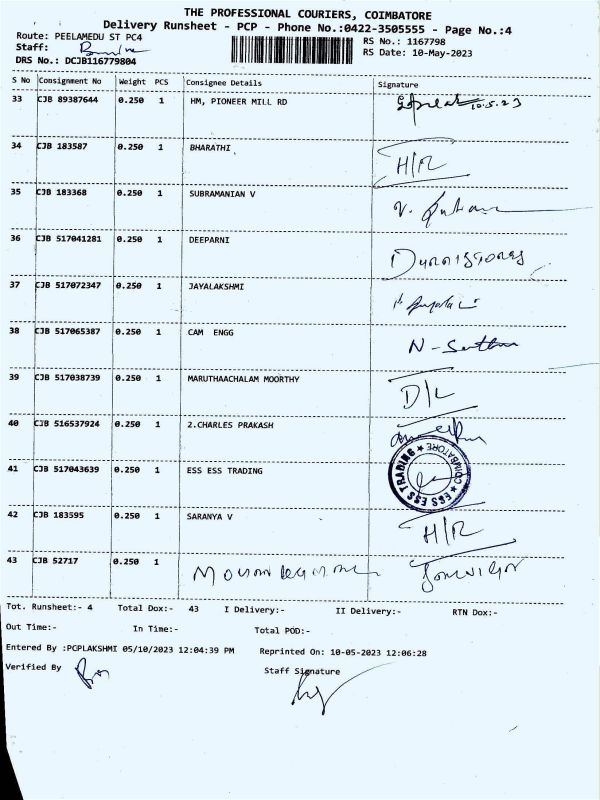 THE PROFESSIONAL COURIERS, COIMBATORE
Delivery Runsheet - PCP - Phone No.:0422-3505555 - Page No.:4
Route: PEELAMEDU ST PC4
RS No.: 1167798
Staff:
RS Date: 10-May-2023
DRS No.: DCJB116779804
S No Consignment No Weight PCS Consignee Details Signature
33 CJB 89387644 0.250 1 HM, PIONEER MILL RD 10.5.23
34 CJB 183587 0.250 1 BHARATHI H/R
35 CJB 183368 0.250 1 SUBRAMANIAN V
36 CJB 517041281 0.250 1 DEEPARNI
37 CJB 517072347 0.250 1 JAYALAKSHMI
38 CJB 517065387 0.250 1 CAM ENGG
39 CJB 517038739 0.250 1 MARUTHAACHALAM MOORTHY D/L
40 CJB 516537924 0.250 1 2.CHARLES PRAKASH
41 CJB 517043639 0.250 1 ESS ESS TRADING
ESS ESS TRADING ★ COIMBATORE ★
42 CJB 183595 0.250 1 SARANYA V H/R
43 CJB 52717 0.250 1
Tot. Runsheet:- 4 Total Dox:- 43 I Delivery:- II Delivery:- RTN Dox:-
Out Time:- In Time:- Total POD:-
Entered By :PCPLAKSHMI 05/10/2023 12:04:39 PM Reprinted On: 10-05-2023 12:06:28
Verified By Staff Signature